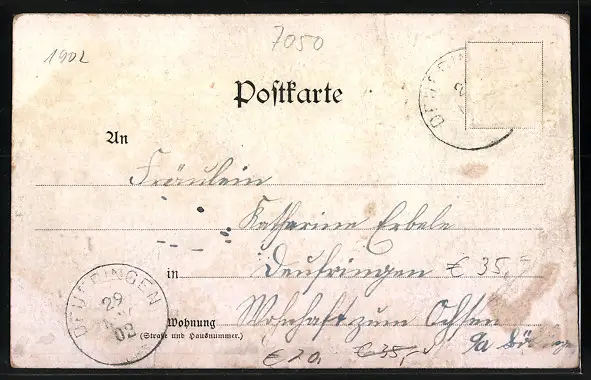 7050
1902
Postkarte
An
Fräulein
Katharine Erbele
in Deufringen € 35,-
Wohnung
(Straße und Hausnummer.)
Wirtschaft zum Ochsen
DEUFRINGEN
29
02
€ 20,
€ 35,-